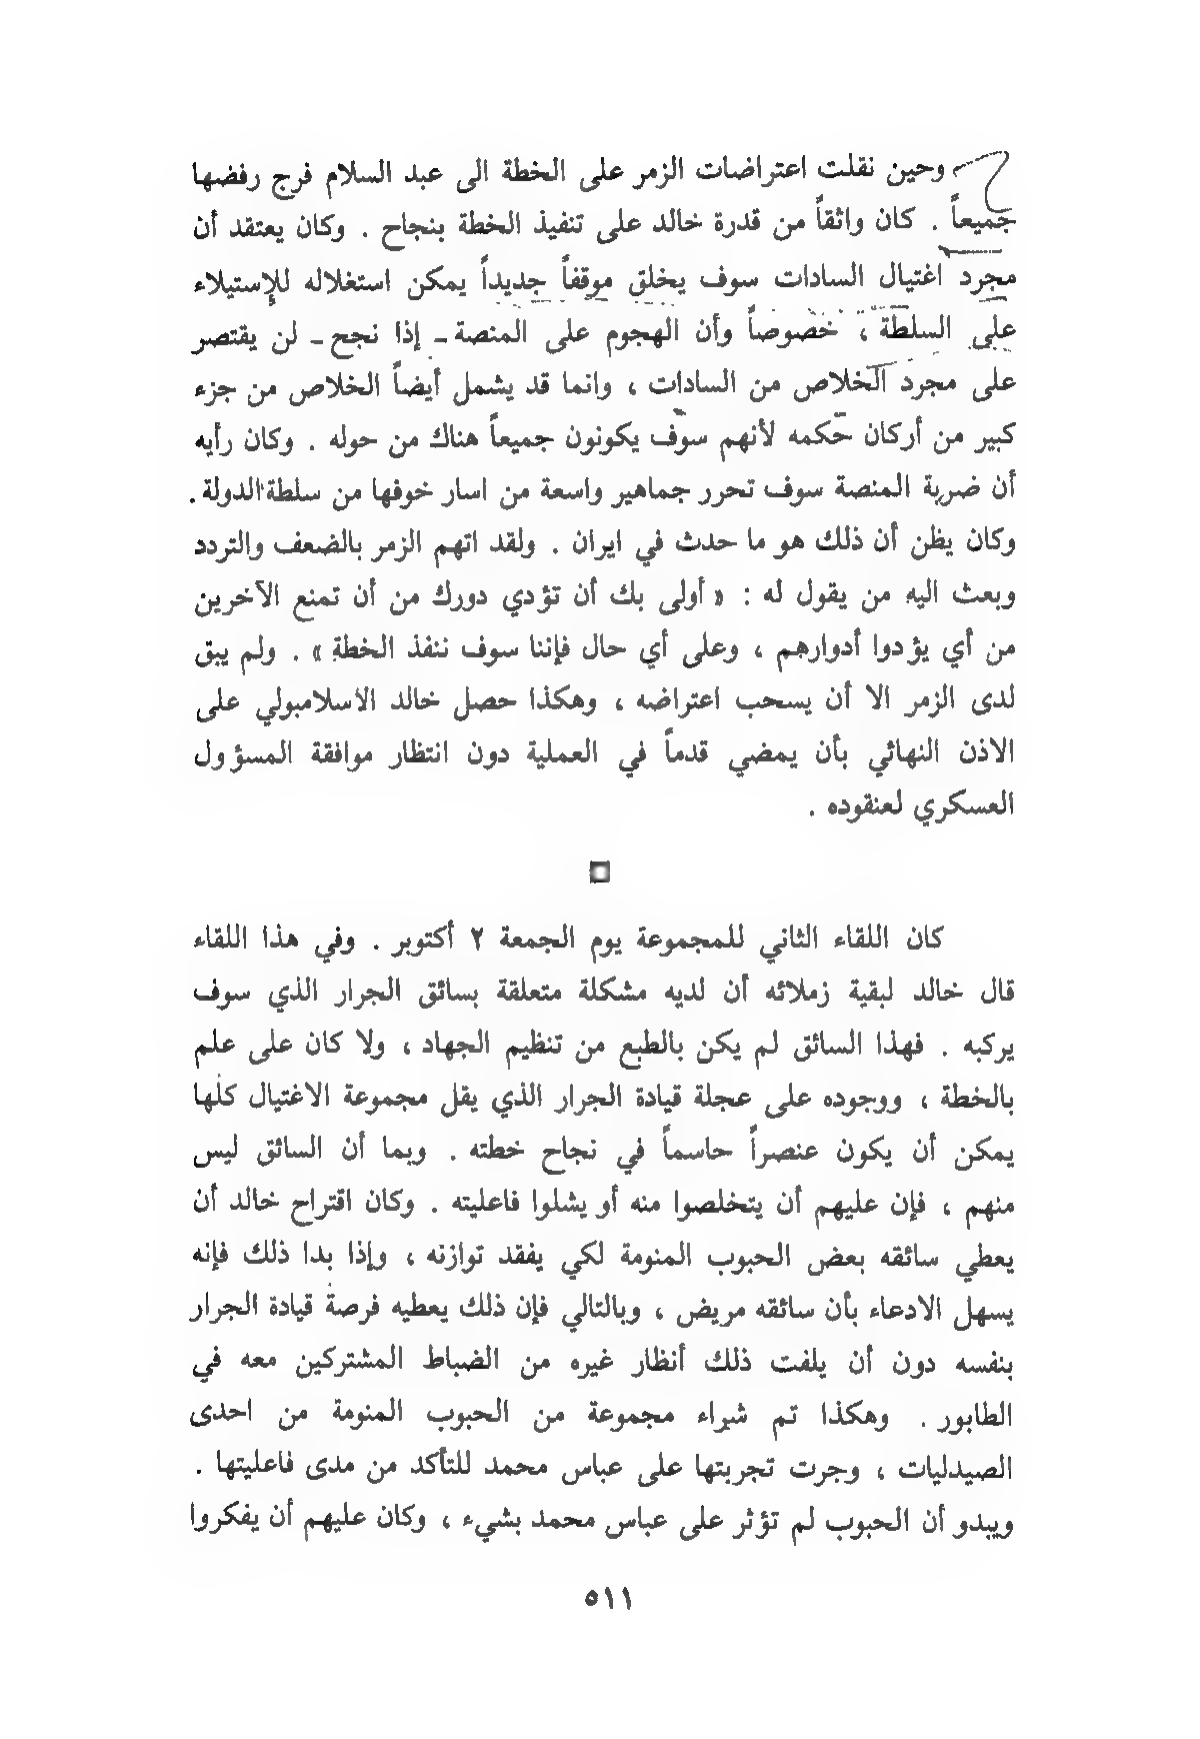 وحين نقلت اعتراضات الزمر على الخطة الى عبد السلام فرج رفضها
جميعاً . كان واثقاً من قدرة خالد على تنفيذ الخطة بنجاح . وكان يعتقد أن
مجرد اغتيال السادات سوف يخلق موقفاً جديداً يمكن استغلاله للإستيلاء
على السلطة ، خصوصاً وأن الهجوم على المنصة - إذا نجح - لن يقتصر
على مجرد الخلاص من السادات ، وانما قد يشمل أيضاً الخلاص من جزء
كبير من أركان حكمه لأنهم سوف يكونون جميعاً هناك من حوله . وكان رأيه
أن ضربة المنصة سوف تحرر جماهير واسعة من اسار خوفها من سلطة الدولة .
وكان يظن أن ذلك هو ما حدث في ايران . ولقد اتهم الزمر بالضعف والتردد
وبعث اليه من يقول له : « أولى بك أن تؤدي دورك من أن تمنع الآخرين
من أي يؤدوا أدوارهم ، وعلى أي حال فإننا سوف ننفذ الخطة » . ولم يبق
لدى الزمر الا أن يسحب اعتراضه ، وهكذا حصل خالد الاسلامبولي على
الاذن النهائي بأن يمضي قدماً في العملية دون انتظار موافقة المسؤول
العسكري لعنقوده .
كان اللقاء الثاني للمجموعة يوم الجمعة ٢ أكتوبر . وفي هذا اللقاء
قال خالد لبقية زملائه أن لديه مشكلة متعلقة بسائق الجرار الذي سوف
يركبه . فهذا السائق لم يكن بالطبع من تنظيم الجهاد ، ولا كان على علم
بالخطة ، ووجوده على عجلة قيادة الجرار الذي يقل مجموعة الاغتيال كلها
يمكن أن يكون عنصراً حاسماً في نجاح خطته . وبما أن السائق ليس
منهم ، فإن عليهم أن يتخلصوا منه أو يشلوا فاعليته . وكان اقتراح خالد أن
يعطي سائقه بعض الحبوب المنومة لكي يفقد توازنه ، وإذا بدا ذلك فإنه
يسهل الادعاء بأن سائقه مريض ، وبالتالي فإن ذلك يعطيه فرصة قيادة الجرار
بنفسه دون أن يلفت ذلك أنظار غيره من الضباط المشتركين معه في
الطابور . وهكذا تم شراء مجموعة من الحبوب المنومة من احدى
الصيدليات ، وجرت تجربتها على عباس محمد للتأكد من مدى فاعليتها .
ويبدو أن الحبوب لم تؤثر على عباس محمد بشيء ، وكان عليهم أن يفكروا
٥١١